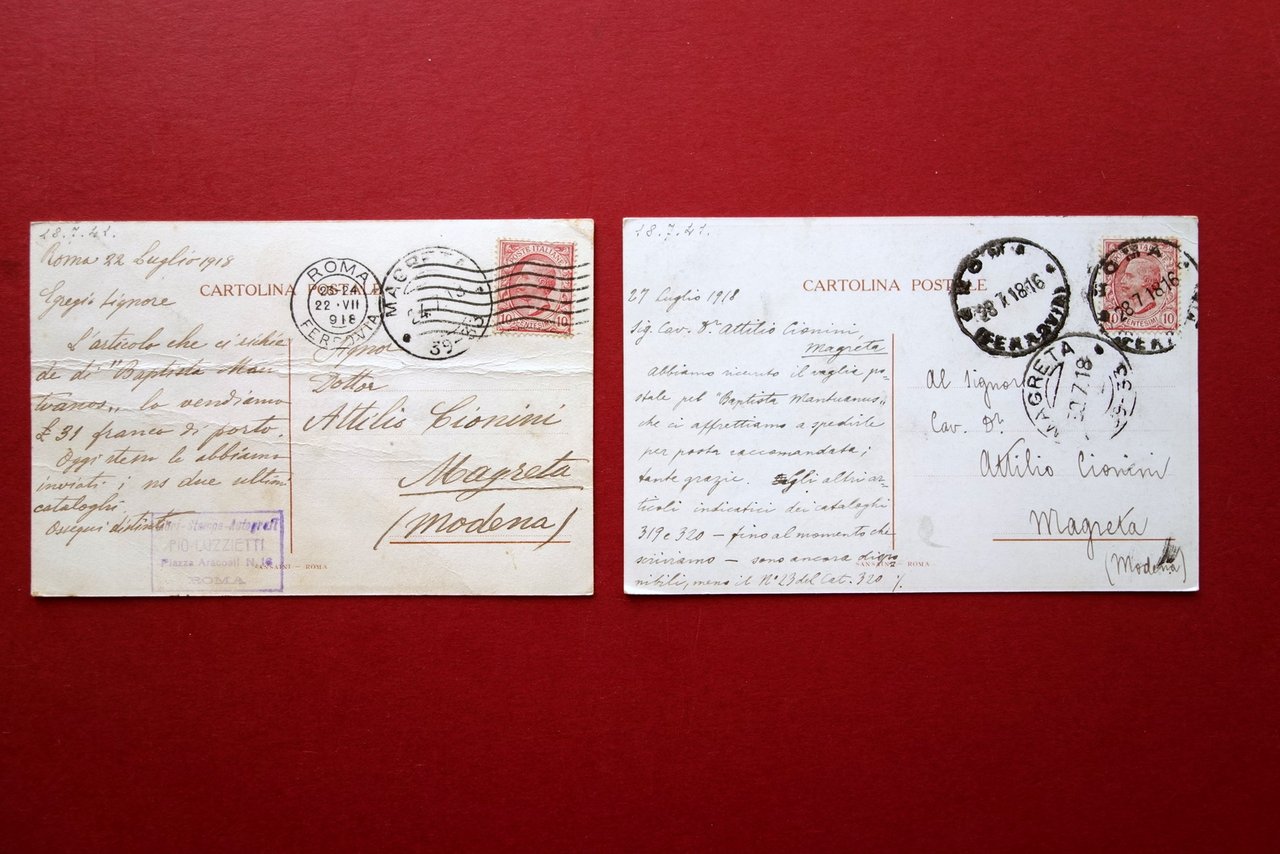 28.7.41.
Roma 22 Luglio 1918
Egregio Signore
L'articolo che ci richie
de di "Baptista Man
tuanos", lo vendiamo
£ 31 franco di porto.
Oggi stesso le abbiamo
inviati i ns due ultimi
cataloghi
Ossequi distinti
Libri-Stampe-Autografi
PIO LUZZIETTI
Piazza Aracoeli N. 16
ROMA
CARTOLINA POSTALE
ROMA
23-24
22·VII
918
FERROVIA
MAGRETA
39-33
POSTE ITALIANE
10 CENTESIMI 10
Dottor
Attilio Cionini
Magreta
(Modena)
SANSAINI - ROMA
28.7.41.
27 Luglio 1918
Sig. Cav. Dr. Attilio Cionini
Magreta
Abbiamo ricevuto il vaglia po-
stale pel "Baptista Mantuanus"
che ci affrettiamo a spedirle
per posta raccomandata;
tante grazie. Gli altri ar-
ticoli indicatici dei cataloghi
319 e 320 – fino al momento che
scriviamo – sono ancora dispo
nibili, meno il No 23 del Cat. 320
CARTOLINA POSTALE
ROMA
28.7.18.16
(FERROVIA)
ROMA
28.7.18.16
10 CENTESIMI 10
MAGRETA
30.7.18
39-33
Al Signor
Cav. Dr.
Attilio Cionini
Magreta
(Modena)
SANSAINI - ROMA